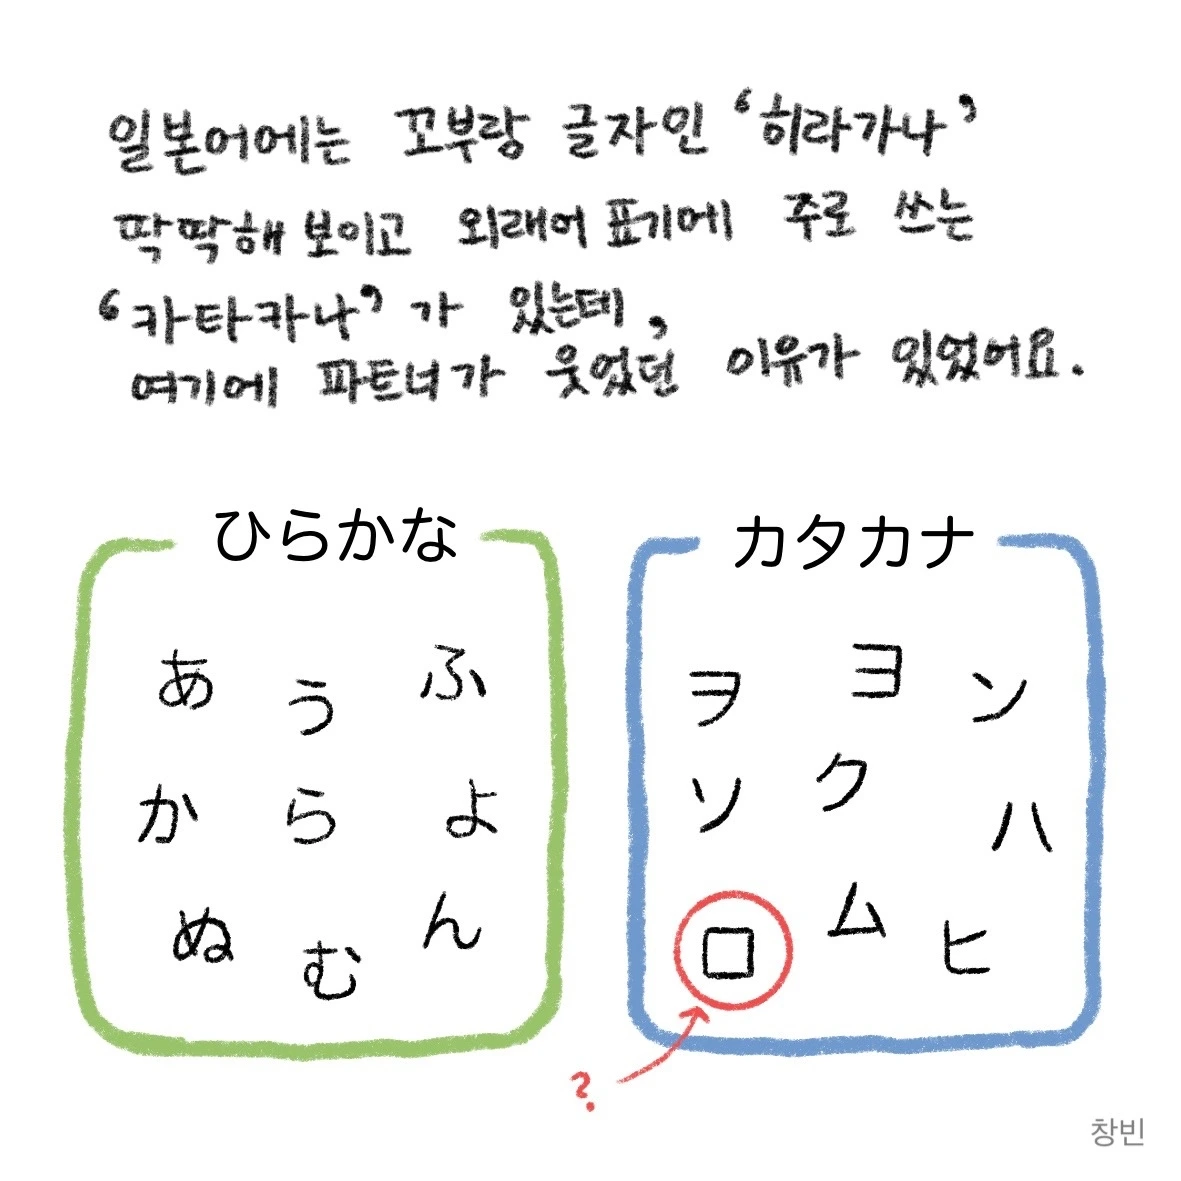 일본어에는 꼬부랑 글자인 ‘히라가나’
딱딱해 보이고 외래어 표기에 주로 쓰는
‘카타카나’가 있는데,
여기에 파트너가 웃었던 이유가 있었어요.
ひらかな
カタカナ
あ う ふ
か ら よ
ぬ む ん
ヲ ヨ ン
ソ ク ハ
ロ ム ヒ
?
창빈